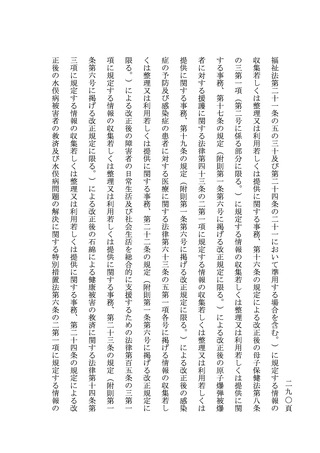 福祉法第二十一条の五の三十及び第二十四条の二十一において準用する場合を含む。）に規定する情報の
収集若しくは整理又は利用若しくは提供に関する事務、第十六条の規定による改正後の母子保健法第八条
の三第一項（第二号に係る部分に限る。）に規定する情報の収集若しくは整理又は利用若しくは提供に関
する事務、第十七条の規定（附則第一条第六号に掲げる改正規定に限る。）による改正後の原子爆弾被爆
者に対する援護に関する法律第四十三条の二第一項に規定する情報の収集若しくは整理又は利用若しくは
提供に関する事務、第十九条の規定（附則第一条第六号に掲げる改正規定に限る。）による改正後の感染
症の予防及び感染症の患者に対する医療に関する法律第六十三条の五第一項各号に掲げる情報の収集若し
くは整理又は利用若しくは提供に関する事務、第二十二条の規定（附則第一条第六号に掲げる改正規定に
限る。）による改正後の障害者の日常生活及び社会生活を総合的に支援するための法律第百五条の三第一
項に規定する情報の収集若しくは整理又は利用若しくは提供に関する事務、第二十三条の規定（附則第一
条第六号に掲げる改正規定に限る。）による改正後の石綿による健康被害の救済に関する法律第十四条第
三項に規定する情報の収集若しくは整理又は利用若しくは提供に関する事務、第二十四条の規定による改
正後の水俣病被害者の救済及び水俣病問題の解決に関する特別措置法第六条の二第一項に規定する情報の
二九〇頁